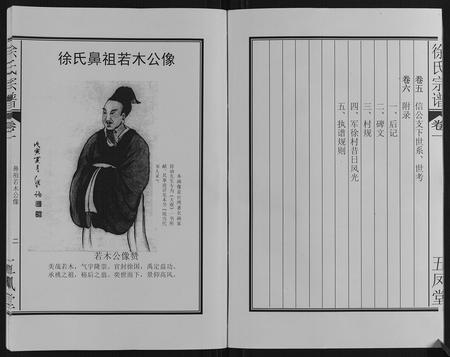 徐氏宗谱
卷一
卷五 信公支下世系、世考
卷六 附录
一、后记
二、碑文
三、村规
四、军徐村昔日风光
五、执谱规则
五凤堂
徐氏鼻祖若木公像
若木公像赞
美哉若木，气宇隆崇。官封徐国，禹定益功。
承桃之祖，杨后之翁。奕世而下，景仰高风。
徐氏宗谱
卷一
鼻祖若木公像
二
五凤堂